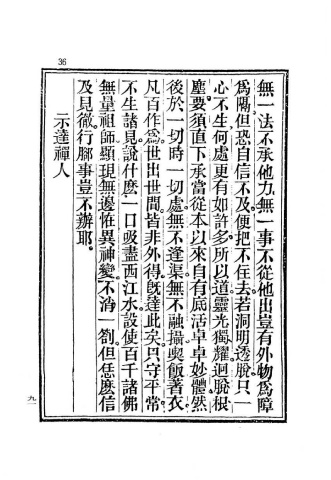 36
無一法不承他力無一事不從他出豈有外物爲障
爲隔但恐自信不及便把不住去若洞明透脫只一
心不生何處更有如許多所以道靈光獨耀迥脫根
塵要須直下承當從本以來自有底活卓卓妙體然
後於一切時一切處無不逢渠無不融攝喫飯著衣
凡百作爲世出世間皆非外得旣達此矣只守平常
不生諸見說什麽一口吸盡西江水設使百千諸佛
無量祖師顯現無邊恠異神變不消一劄但恁麽信
及見徹行腳事豈不辦耶
示達禪人
九一